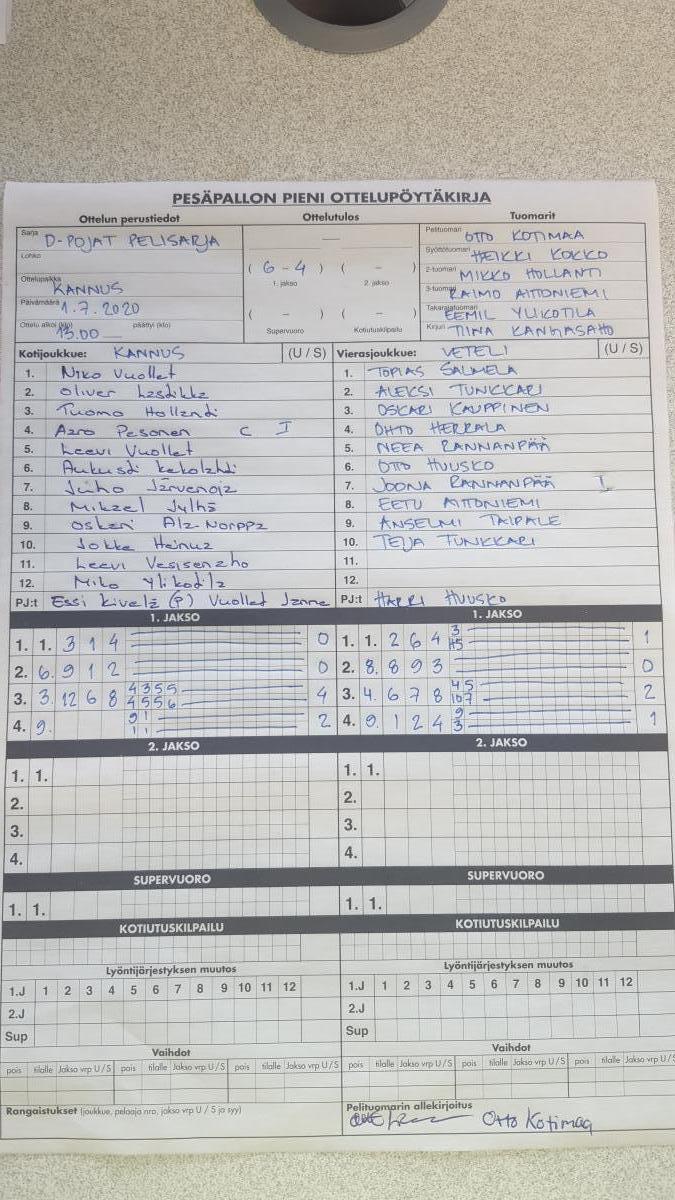 PESÄPALLON PIENI OTTELUPÖYTÄKIRJA
Ottelun perustiedot
Ottelutulos
Tuomarit
Sarja D-POJAT PELISARJA
Lohko
Ottelupaikka KANNUS
Päivämäärä 1.7.2020
Ottelu alkoi (klo) 13.00 päättyi (klo)
( 6 - 4 ) ( - )
1. jakso 2. jakso
( - ) ( - )
Supervuoro Kotiutuskilpailu
Pelituomari OTTO KOTIMAA
Syöttötuomari HEIKKI KOKKO
2-tuomari MIKKO HOLLANTI
3-tuomari RAIMO AITTONIEMI
Takarajatuomari EEMIL YLIKOTILA
Kirjuri TIINA KANGASAHO
Kotijoukkue: KANNUS (U / S)
1. Niko Vuollet
2. Oliver
3. Tuomo Hollandi
4. Aaro Pesonen C I
5. Leevi Vuollet
6. Aukusti
7. Juho
8. Mikael Jylhä
9. Oskari Ala-Norppa
10. Jokke
11. Leevi Vesisenaho
12. Miko Ylikotila
PJ:t Essi Kivelä (P) Vuollet Janne
Vierasjoukkue: VETELI (U / S)
1. TOPIAS SALMELA
2. ALEKSI TUNKKARI
3. OSKARI KAUPPINEN
4. OHTO HERRALA
5. NEEA RANNANPÄÄ
6. OTTO HUUSKO
7. JOONA RANNANPÄÄ I
8. EETU AITTONIEMI
9. ANSELMI TAIPALE
10. TEIJA TUNKKARI
11.
12.
PJ:t HARRI HUUSKO
1. JAKSO
1. 1. 3 1 4 0
2. 6. 9 1 2 0
3. 3. 12 6 8 4355 4556 4
4. 9. 91 11 2
1. JAKSO
1. 1. 2 6 4 3 H5 1
2. 8. 8 9 3 0
3. 4. 6 7 8 45 107 2
4. 9. 1 2 4 9 3 1
2. JAKSO
1. 1.
2.
3.
4.
2. JAKSO
1. 1.
2.
3.
4.
SUPERVUORO
1. 1.
SUPERVUORO
1. 1.
KOTIUTUSKILPAILU
KOTIUTUSKILPAILU
Lyöntijärjestyksen muutos
1.J 1 2 3 4 5 6 7 8 9 10 11 12
2.J
Sup
Lyöntijärjestyksen muutos
1.J 1 2 3 4 5 6 7 8 9 10 11 12
2.J
Sup
Vaihdot
pois tilalle Jakso vrp U / S pois tilalle Jakso vrp U / S pois tilalle Jakso vrp U / S
Vaihdot
pois tilalle Jakso vrp U / S pois tilalle Jakso vrp U / S pois tilalle Jakso vrp U / S
Rangaistukset (joukkue, pelaaja nro, jakso vrp U / S ja syy)
Pelituomarin allekirjoitus
Otto Kotimaa